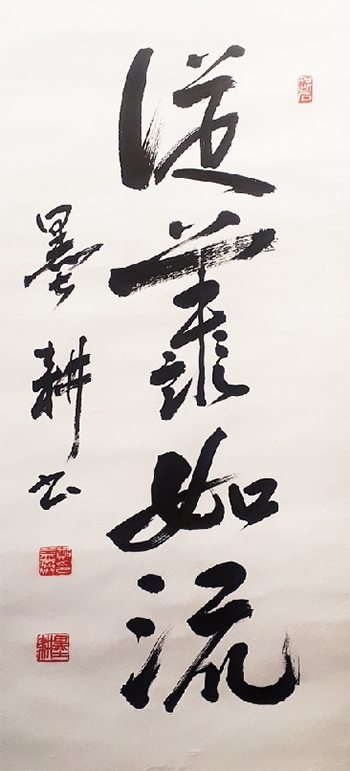 從善如流
墨耕書